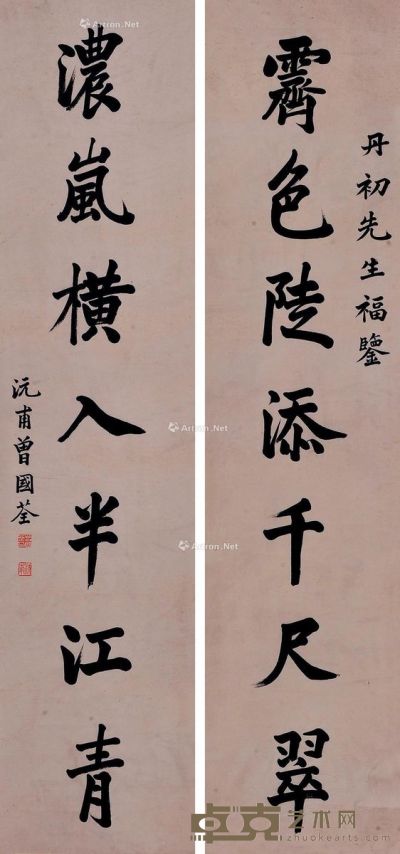 丹初先生福鑒
霽色陡添千尺翠
濃嵐橫入半江青
沅甫曾國荃
Artron.Net
Artron.Net
Artron.Net
Artron.Net
卓克艺术网
zhuokearts.com